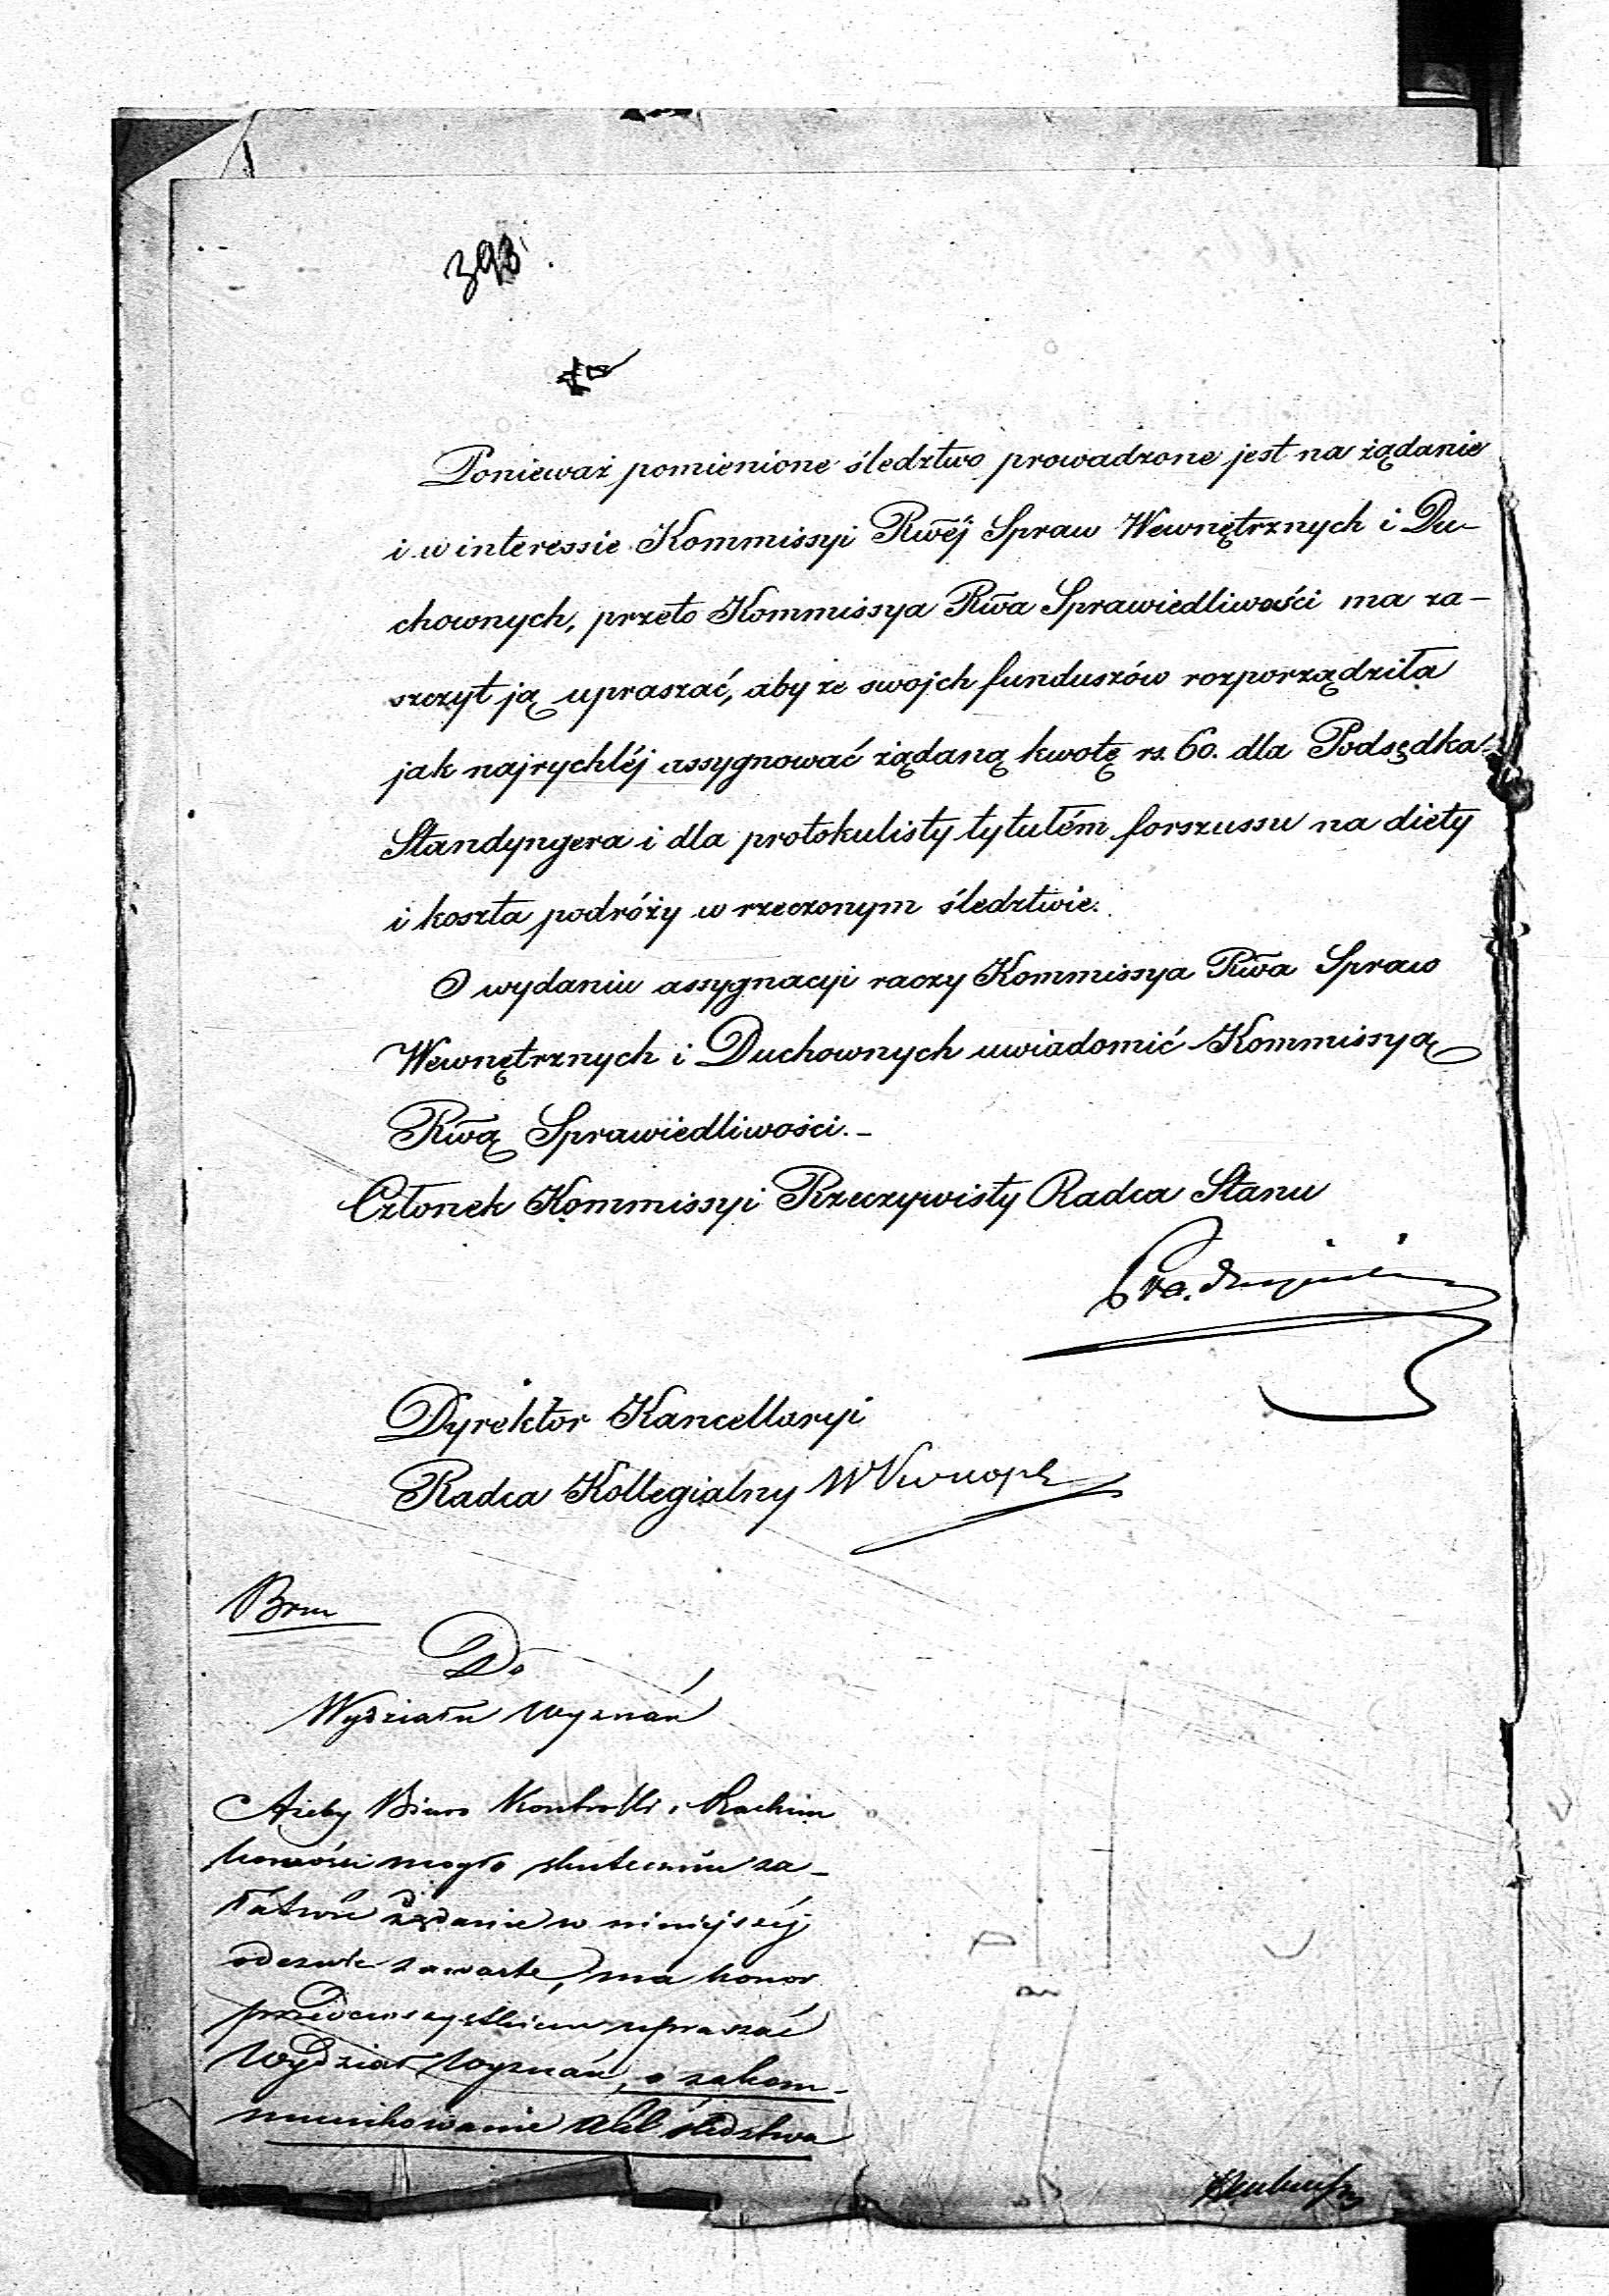 393
Ponieważ pomienione śledztwo prowadzone jest na żądanie
i w interessie Kommissyi Rwéj Spraw Wewnętrznych i Du-
chownych, przeto Kommissya Rwa Sprawiedliwości ma za-
szczyt ją upraszać, aby ze swojch funduszów rozporządziła
jak najrychléj assygnować żądaną kwotę rs. 60. dla Podsędka
Standyngera i dla protokulisty tytułém forszussu na diety
i koszta podróży w rzeczonym śledztwie.
O wydaniu assygnacyi raczy Kommissya Rwa Spraw
Wewnętrznych i Duchownych uwiadomić Kommissyą
Rwą Sprawiedliwości.-
Członek Kommissyi Rzeczywisty Radca Stanu
Dyrektor Kancellaryi
Radca Kollegialny
Do
Wydziału Wyznań
Ażeby Biuro Kontrolli i Rachun
kowości mogło skutecznie za-
łatwić żądanie w niniejszéj
odezwie zawarte, ma honor
przedewszystkiem upraszać
Wydział Wyznań, o zakom-
munikowanie akt śledztwa